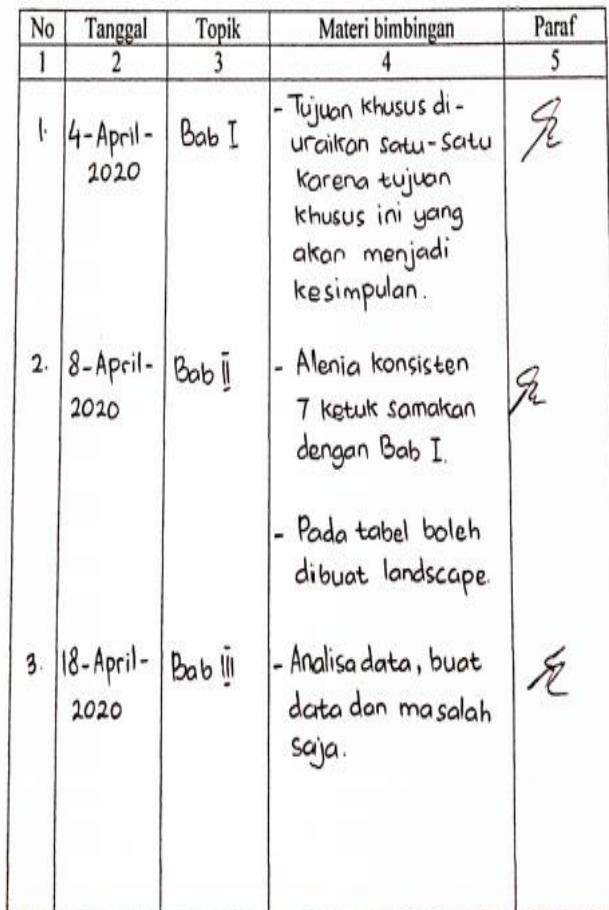 No Tanggal Topik Materi bimbingan Paraf
1 2 3 4 5
1. 4-April- Bab I - Tujuan khusus di-
2020 uraikan satu-satu
karena tujuan
khusus ini yang
akan menjadi
kesimpulan.
2. 8-April- Bab II - Alenia konsisten
2020 7 ketuk samakan
dengan Bab I.
- Pada tabel boleh
dibuat landscape.
3. 18-April- Bab III - Analisa data, buat
2020 data dan masalah
saja.